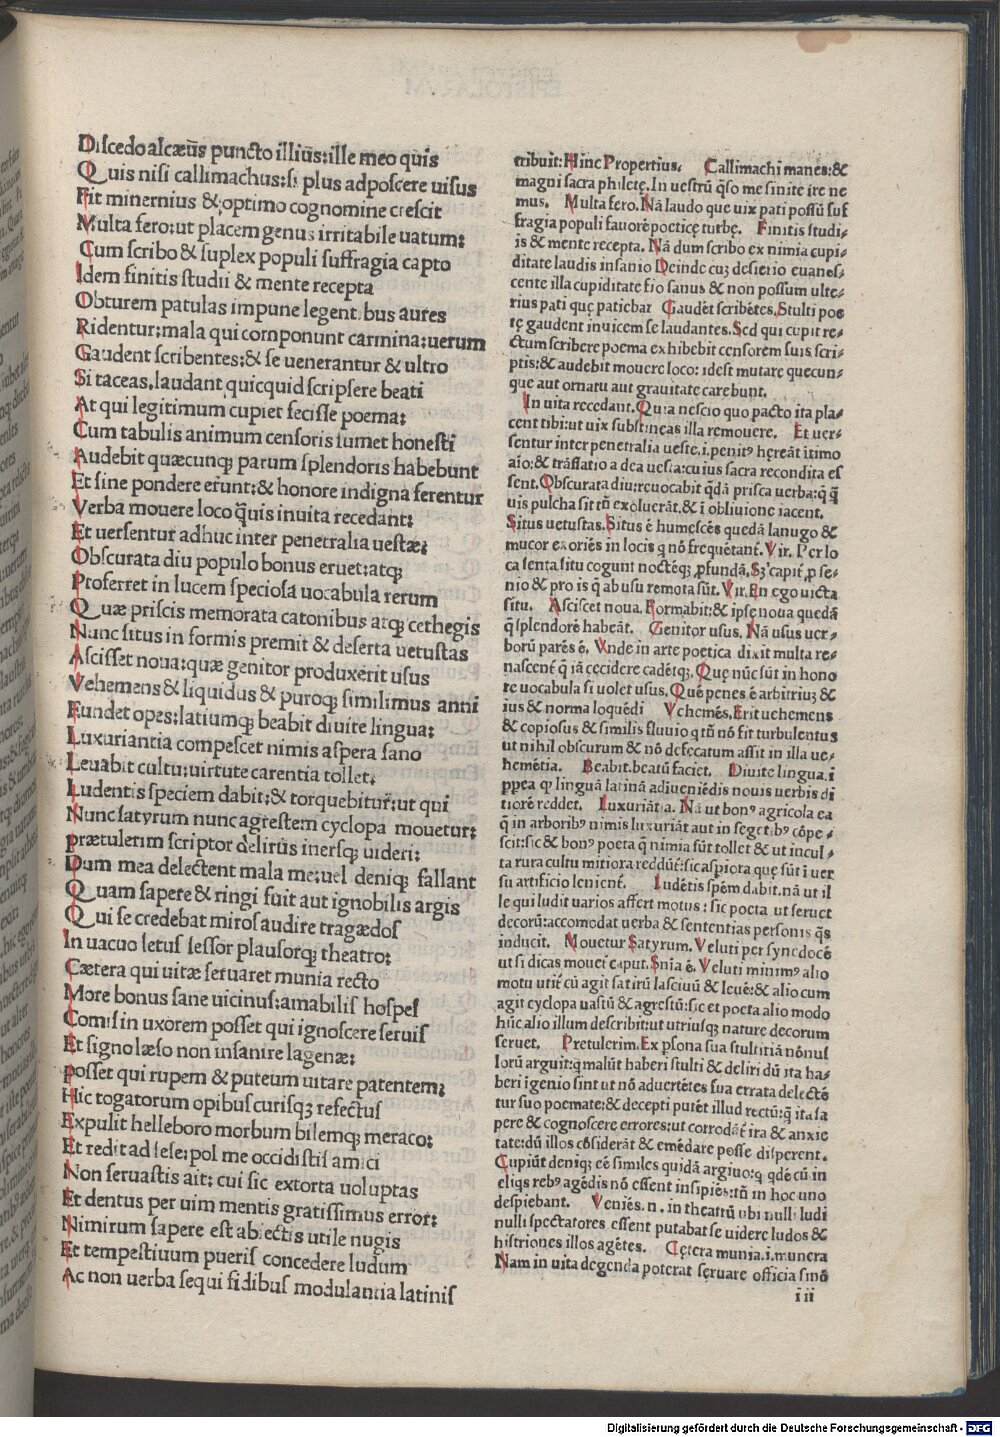 Discedo alcæus̄ puncto illius̄: ille meo quis
Quis nisi callimachus: si plus adposcere uisus
Fit minernius & optimo cognomine crescit
Multa fero: ut placem genus irritabile uatum:
Cum scribo & suplex populi suffragia capto
Idem finitis studii & mente recepta
Obturem patulas impune legent bus aures
Ridentur: mala qui componunt carmina: uerum
Gaudent scribentes: & se uenerantur & ultro
Si taceas, laudant quicquid scripsere beati
At qui legitimum cupiet fecisse poema:
Cum tabulis animum censoris sumet honesti
Audebit quæcunq; parum splendoris habebunt
Et sine pondere erunt: & honore indigna ferentur
Verba mouere loco q̃uis inuita recedant:
Et uersentur adhuc inter penetralia uestæ:
Obscurata diu populo bonus eruet: atq;
Proferret in lucem speciosa uocabula rerum
Quæ priscis memorata catonibus atq; cethegis
Nunc situs in formis premit & deserta uetustas
Ascisset noua: quæ genitor produxerit usus
Vehemens & liquidus & puroq; similimus amni
Fundet opes: latiumq; beabit diuite lingua:
Luxuriantia compescet nimis aspera sano
Leuabit cultu: uirtute carentia tollet:
Ludentis speciem dabit: & torquebitur: ut qui
Nunc satyrum nunc agrestem cyclopa mouetur:
prætulerim scriptor delirus inersq; uideri:
Dum mea delectent mala me: uel deniq; fallant
Quam sapere & ringi fuit aut ignobilis argis
Qui se credebat miros audire tragædos
In uacuo letus sessor plausorq; theatro:
Cætera qui uitæ seruaret munia recto
More bonus sane uicinus: amabilis hospes
Comis in uxorem posset qui ignoscere seruis
Et signo læso non insanire lagenæ:
posset qui rupem & puteum uitare patentem:
Hic togatorum opibus curisq; refectus
Expulit helleboro morbum bilemq; meraco:
Et redit ad sese: pol me occidistis amici
Non seruastis ait: cui sic extorta uoluptas
Et dentus per uim mentis gratissimus error:
Nimirum sapere est abiectis utile nugis
Et tempestiuum pueris concedere ludum
Ac non uerba sequi fidibus modulantia latinis
tribuit: Hinc Propertius, Callimachi manes: &
magni sacra philetę. In uestrū q̃so me sinite ire ne
mus. Multa fero. Nā laudo que uix pati possū suf
fragia populi fauorē poeticę turbę. Finitis studi-
is & mente recepta. Nā dum scribo ex nimia cupi-
ditate laudis insanio Deinde cuȝ desierio euanes-
cente illa cupiditate fio sanus & non possum ulte-
rius pati quę patiebar Gaudēt scribētes. Stulti poe
tę gaudent inuicem se laudantes. Sed qui cupit re-
ctum scribere poema exhibebit censorem suis scri-
ptis: & audebit mouere loco: idest mutare quecun-
que aut ornatu aut grauitate carebunt.
In uita recedant. Quia nescio quo pacto ita pla-
cent tibi: ut uix substineas illa remouere. Et uer-
sentur inter penetralia ueste. i. penitꝰ hęreāt ītimo
aīo: & trāslatio a dea uesta: cuius sacra recondita es
sent. Obscurata diu: reuocabit q̄dā prisca uerba: q̄ q̄
uis pulcha sīt tn̄ exoluerāt. & ī obliuione iacent.
Situs uetustas. Situs ē humescēs quedā lanugo &
mucor exoriēs in locis q̄ nō frequētant̄. Vir. Per lo
ca senta situ cogunt noctēq; ꝓfundā. Sȝ capit̄ ꝓ se-
nio & pro is q̄ ab usu remota sūt. Vir. En ego uicta
situ. Asciscet noua. Formabit: & ipse noua quedā
q̄ splendorē habeāt. Genitor usus. Nā usus uer-
borū parēs ē. Vnde in arte poetica dixit multa re-
nascent̄ q̄ iā cecidere cadētq;. Quę nūc sūt in hono
re uocabula si uolet usus. Quē penes ē arbitriuȝ &
ius & norma loquēdi Vehemēs. Erit uehemens
& copiosus & similis fluuio q tn̄ nō fit turbulentus
ut nihil obscurum & nō defecatum assit in illa ue-
hemētia. Beabit. beatū faciet. Diuite lingua. i
ppea qꝫ linguā latinā adiueniēdis nouis uerbis di
tiorē reddet. Luxuriātia. Nā ut bonꝰ agricola ea
q̄ in arboribꝰ nimis luxuriāt aut in segetibꝰ cōpe-
scit: sic & bonꝰ poeta q̄ nimia sūt tollet & ut incul-
ta rura cultu mitiora reddūt̄: sic aspiota que sūt ī uer
su artificio lenient̄. Ludētis spēm dabit. nā ut il
le qui ludit uarios affert motus: sic poeta ut seruet
decorū: accomodat uerba & sententias personis q̄s
inducit. Mouetur Satyrum. Veluti per syncdocē
ut si dicas mouei caput. Snīa ē. Veluti minimꝰ alio
motu utit̄ cū agit satirū lasciuū & leuē: & alio cum
agit cyclopa uastū & agrestū: sic et poeta alio modo
hūc alio illum describit: ut utriusq; nature decorum
seruet. Pretulerim. Ex ꝑsona sua stultitiā nōnul
lorū arguit: q̄ malūt haberi stulti & deliri dū ita ha-
beri īgenio sint ut nō aduertētes sua errata delectē
tur suo poemate: & decepti putēt illud rectū: q̄ ita sa
pere & cognoscere errores: ut corrodāt̄ ira & anxie
tate: dū illos cōsiderāt & emēdare posse disperent.
Cupiūt deniq; eē similes quidā argiuo: q qdē cū in
eliqs rebꝰ agēdis nō essent insipiēs: tn̄ in hoc uno
despiebant. Veniēs. n. in theatrū ubi nulli ludi
nulli spectatores essent putabat se uidere ludos &
histriones illos agētes. Cętera munia. i. munera
Nam in uita degenda poterat seruare officia sinō
i ii
Digitalisierung gefördert durch die Deutsche Forschungsgemeinschaft - DFG